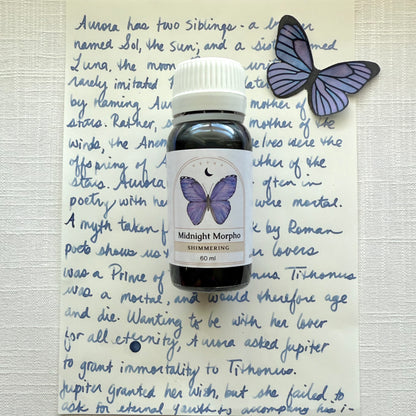 Aurora has two siblings - a
named Sol, the sun, and a
Luna, the moon.
rarely imitated
by naming mother of
stars. Rather, mother of the
winds, the were the
offspring of of the
stars. Aurora often in
poetry with her were mortal.
A myth taken by Roman
poets shows us lovers
was a Prince of Tithonus
was a mortal, and would therefore age
and die. Wanting to be with her lover
for all eternity, Aurora asked Jupiter
to grant immortality to Tithonus.
Jupiter granted her wish, but she failed to
ask for eternal youth to accompany his
Midnight Morpho
SHIMMERING
60 ml